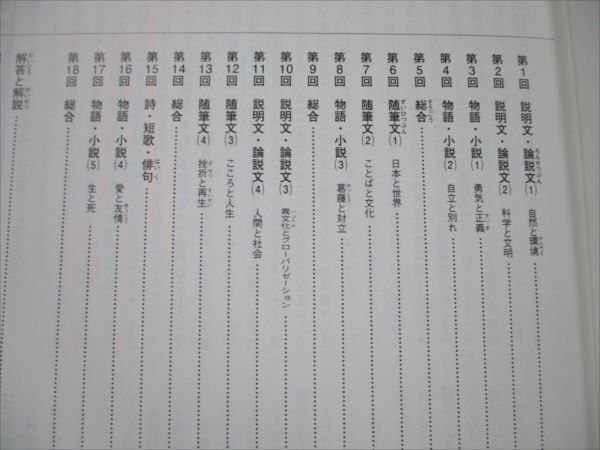 第1回 説明文・論説文(1) 自然と環境
第2回 説明文・論説文(2) 科学と文明
第3回 物語・小説(1) 勇気と正義
第4回 物語・小説(2) 自立と別れ
第5回 総合
第6回 随筆文(1) 日本と世界
第7回 随筆文(2) ことばと文化
第8回 物語・小説(3) 葛藤と対立
第9回 総合
第10回 説明文・論説文(3) 異文化とグローバリゼーション
第11回 説明文・論説文(4) 人間と社会
第12回 随筆文(3) こころと人生
第13回 随筆文(4) 挫折と再生
第14回 総合
第15回 詩・短歌・俳句
第16回 物語・小説(4) 愛と友情
第17回 物語・小説(5) 生と死
第18回 総合
解答と解説